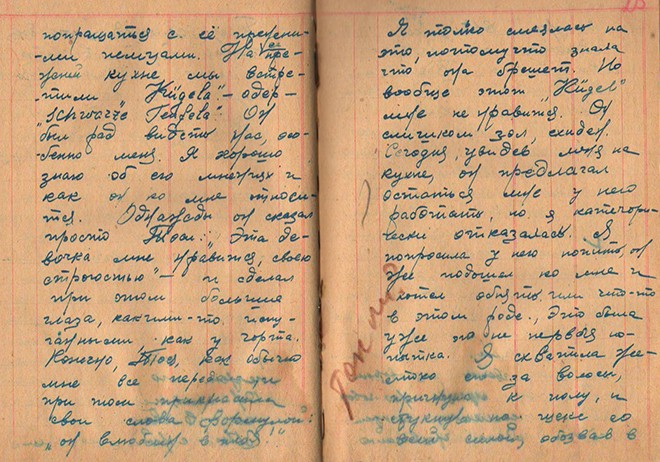 попращаться с её прежни-
ми немцами. На её пре-
жней кухне мы встре-
тили "Kügela" — обер-
"Schwarze Teufela". Он
был рад видеть нас, осо-
бенно меня. Я хорошо
знаю об его мнениях и
как он ко мне относи-
тся. Однажды он сказал
просто Тоси: "Эта де-
вочка мне нравится, своею
строгостью" — и сделал
при этом большие
глаза, какими-то испу-
ганными, как у чорта.
Конечно, Тося, как обычно
мне все передала и
при том прикрасила
свои слова формулой:
"он влюбился в тебя!"
Я только смеялась на
это, потому что знала
что она брешет. Но
вообще этот "Küdel"
мне не нравится. Он
слишком зол, ехиден.
Сегодня, увидев меня на
кухне, он предлагал
остаться мне у него
работать, но я категори-
чески отказалась. Я
попросила у него попить, он
же подошел ко мне и
хотел обнять или что-то
в этом роде. Это была
уже по не первая по-
пытка. Я схватила же-
стоко его за волосы,
пригнула к полу, и
стукнула по щеке со
всей силой обозвав в